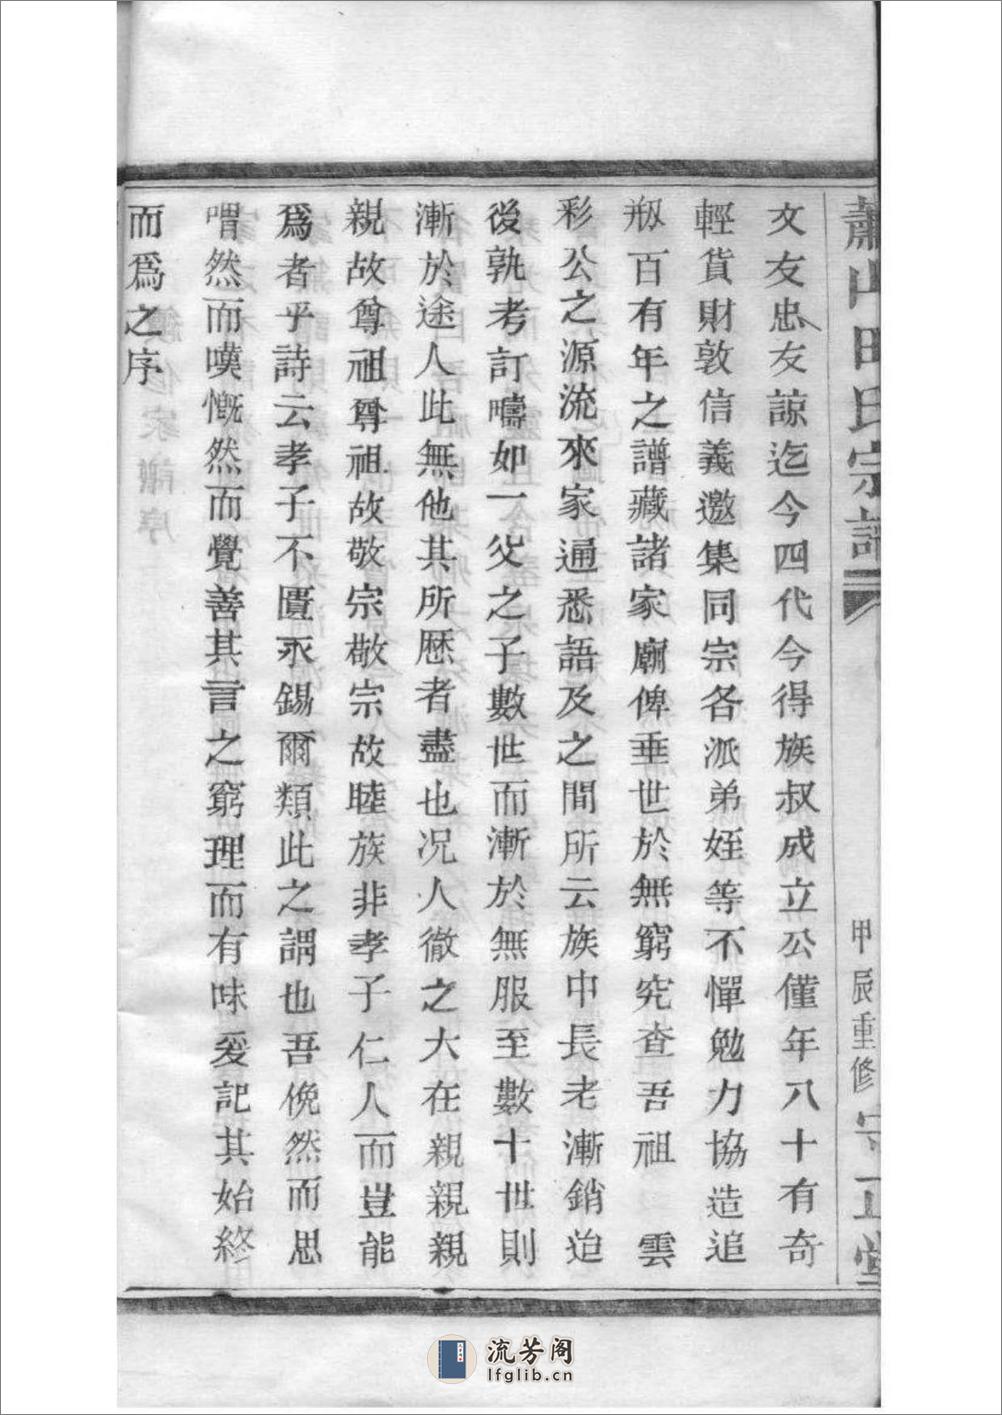 蕭山田氏宗譜
甲辰重修
文友忠友諒迄今四代今得族叔成立公僅年八十有奇
輕貨財敦信義邀集同宗各派弟姪等不憚勉力協造追
叛百有年之譜藏諸家廟俾垂世於無窮究查吾祖 雲
彩公之源流來家通悉語及之間所云族中長老漸銷迨
後孰考訂疇如一父之子數世而漸於無服至數十世則
漸於途人此無他其所歷者盡也况人徹之大在親親親
親故尊祖尊祖故敬宗敬宗故睦族非孝子仁人而豈能
爲者乎詩云孝子不匱永錫爾類此之謂也吾俛然而思
喟然而嘆慨然而覺善其言之窮理而有味爰記其始終
而爲之序
流芳阁
lfglib.cn